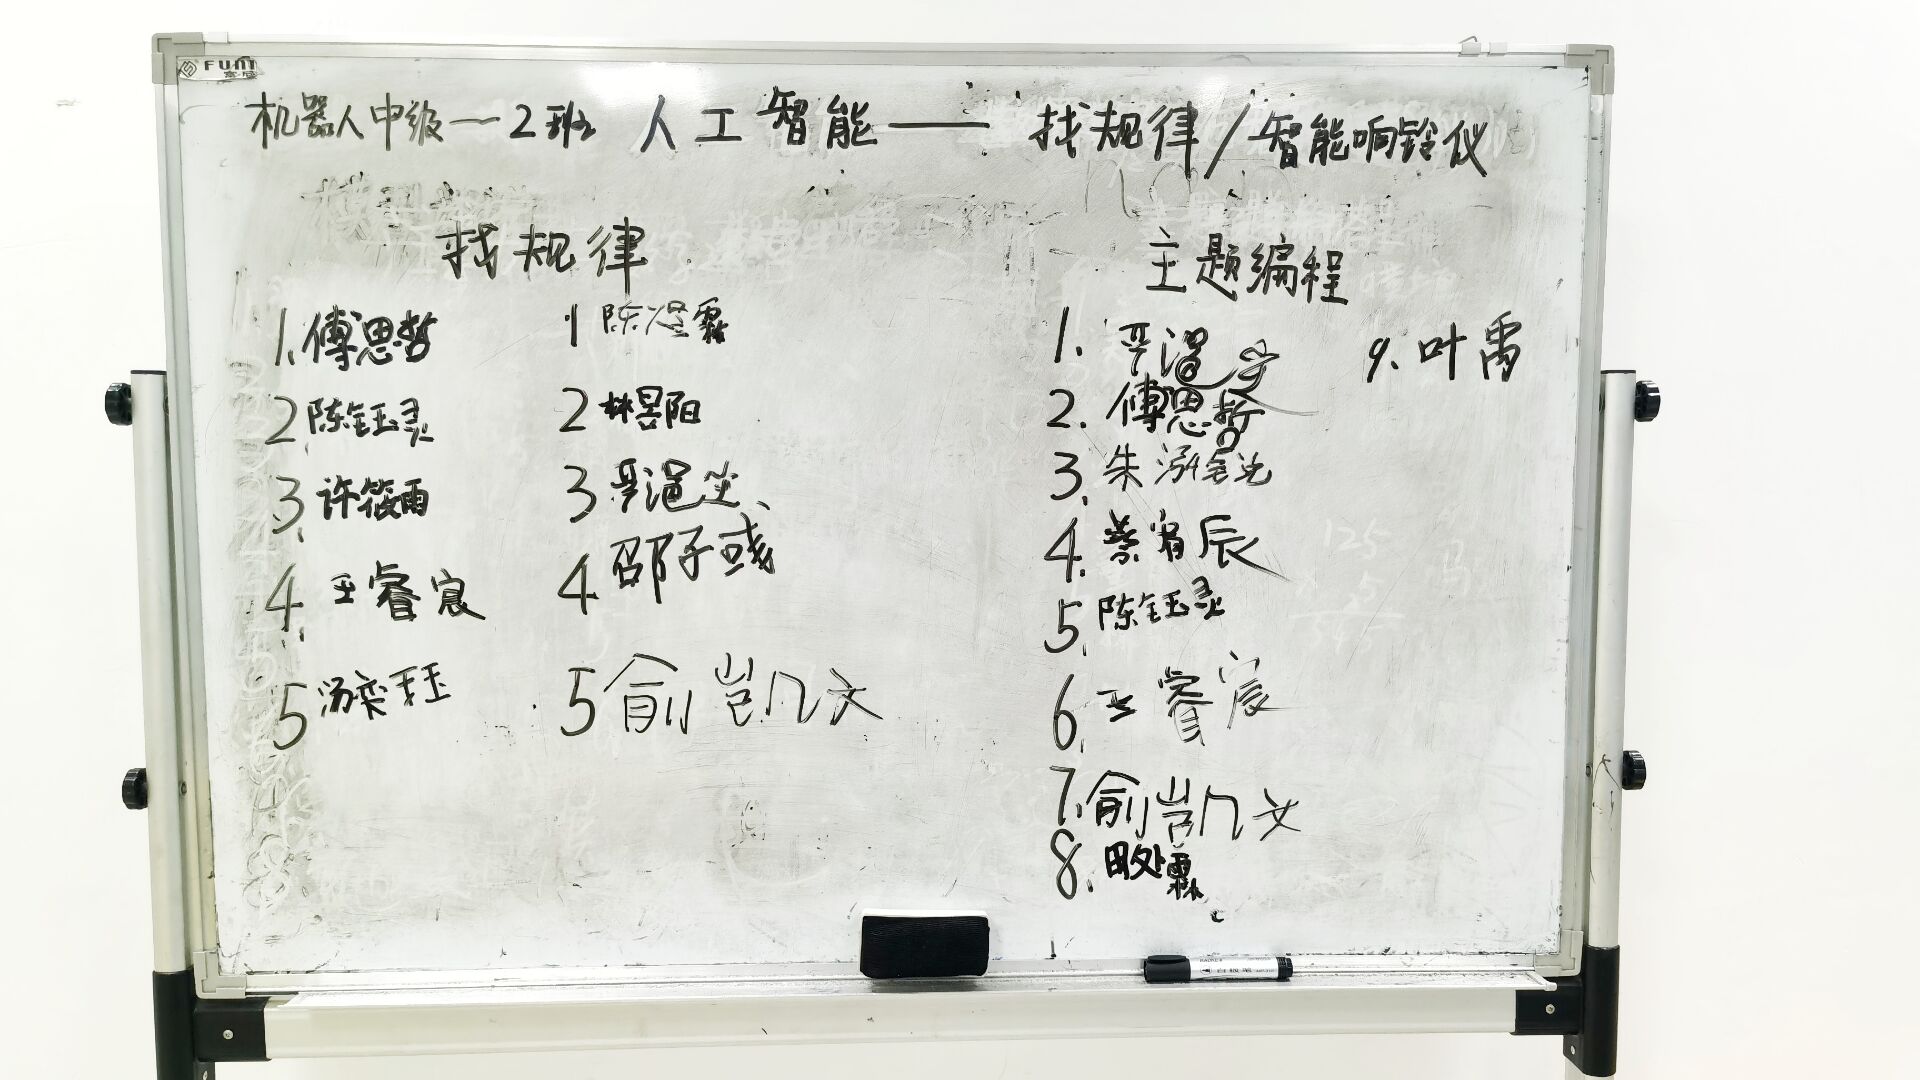 FUNI
机器人中级一2班 人工智能——找规律/智能响铃仪
找规律
1.傅思哲
2陈钰灵
3许筱雨
4王睿宸
5汤奕珏
1陈煜霖
2林昱阳
3严浥尘
4邵子彧
5俞凯文
主题编程
1.严浥
2.傅思哲
3.朱泓
4.蔡宥辰
5.陈钰灵
6.王睿宸
7.俞凯文
8.霖
9.叶禹